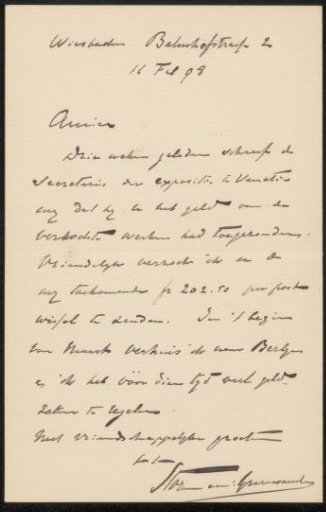 Wiesbaden Bahnhofstrasse 2
16 Feb 98
Amice
Drie weken geleden schreef de
Secretaris der expositie te Venetie
mij dat hij U het geld van de
verkochte werken had toegezonden.
Vriendelijk verzoek ik U de
mij toekomende fr 202.50 per post
wissel te zenden. In 't begin
van Maart verhuis ik naar Berlijn
en ik heb vóór dien tijd veel geld
zaken te regelen
Met vriendschappelijke groeten
tt
Storm van 's Gravesande